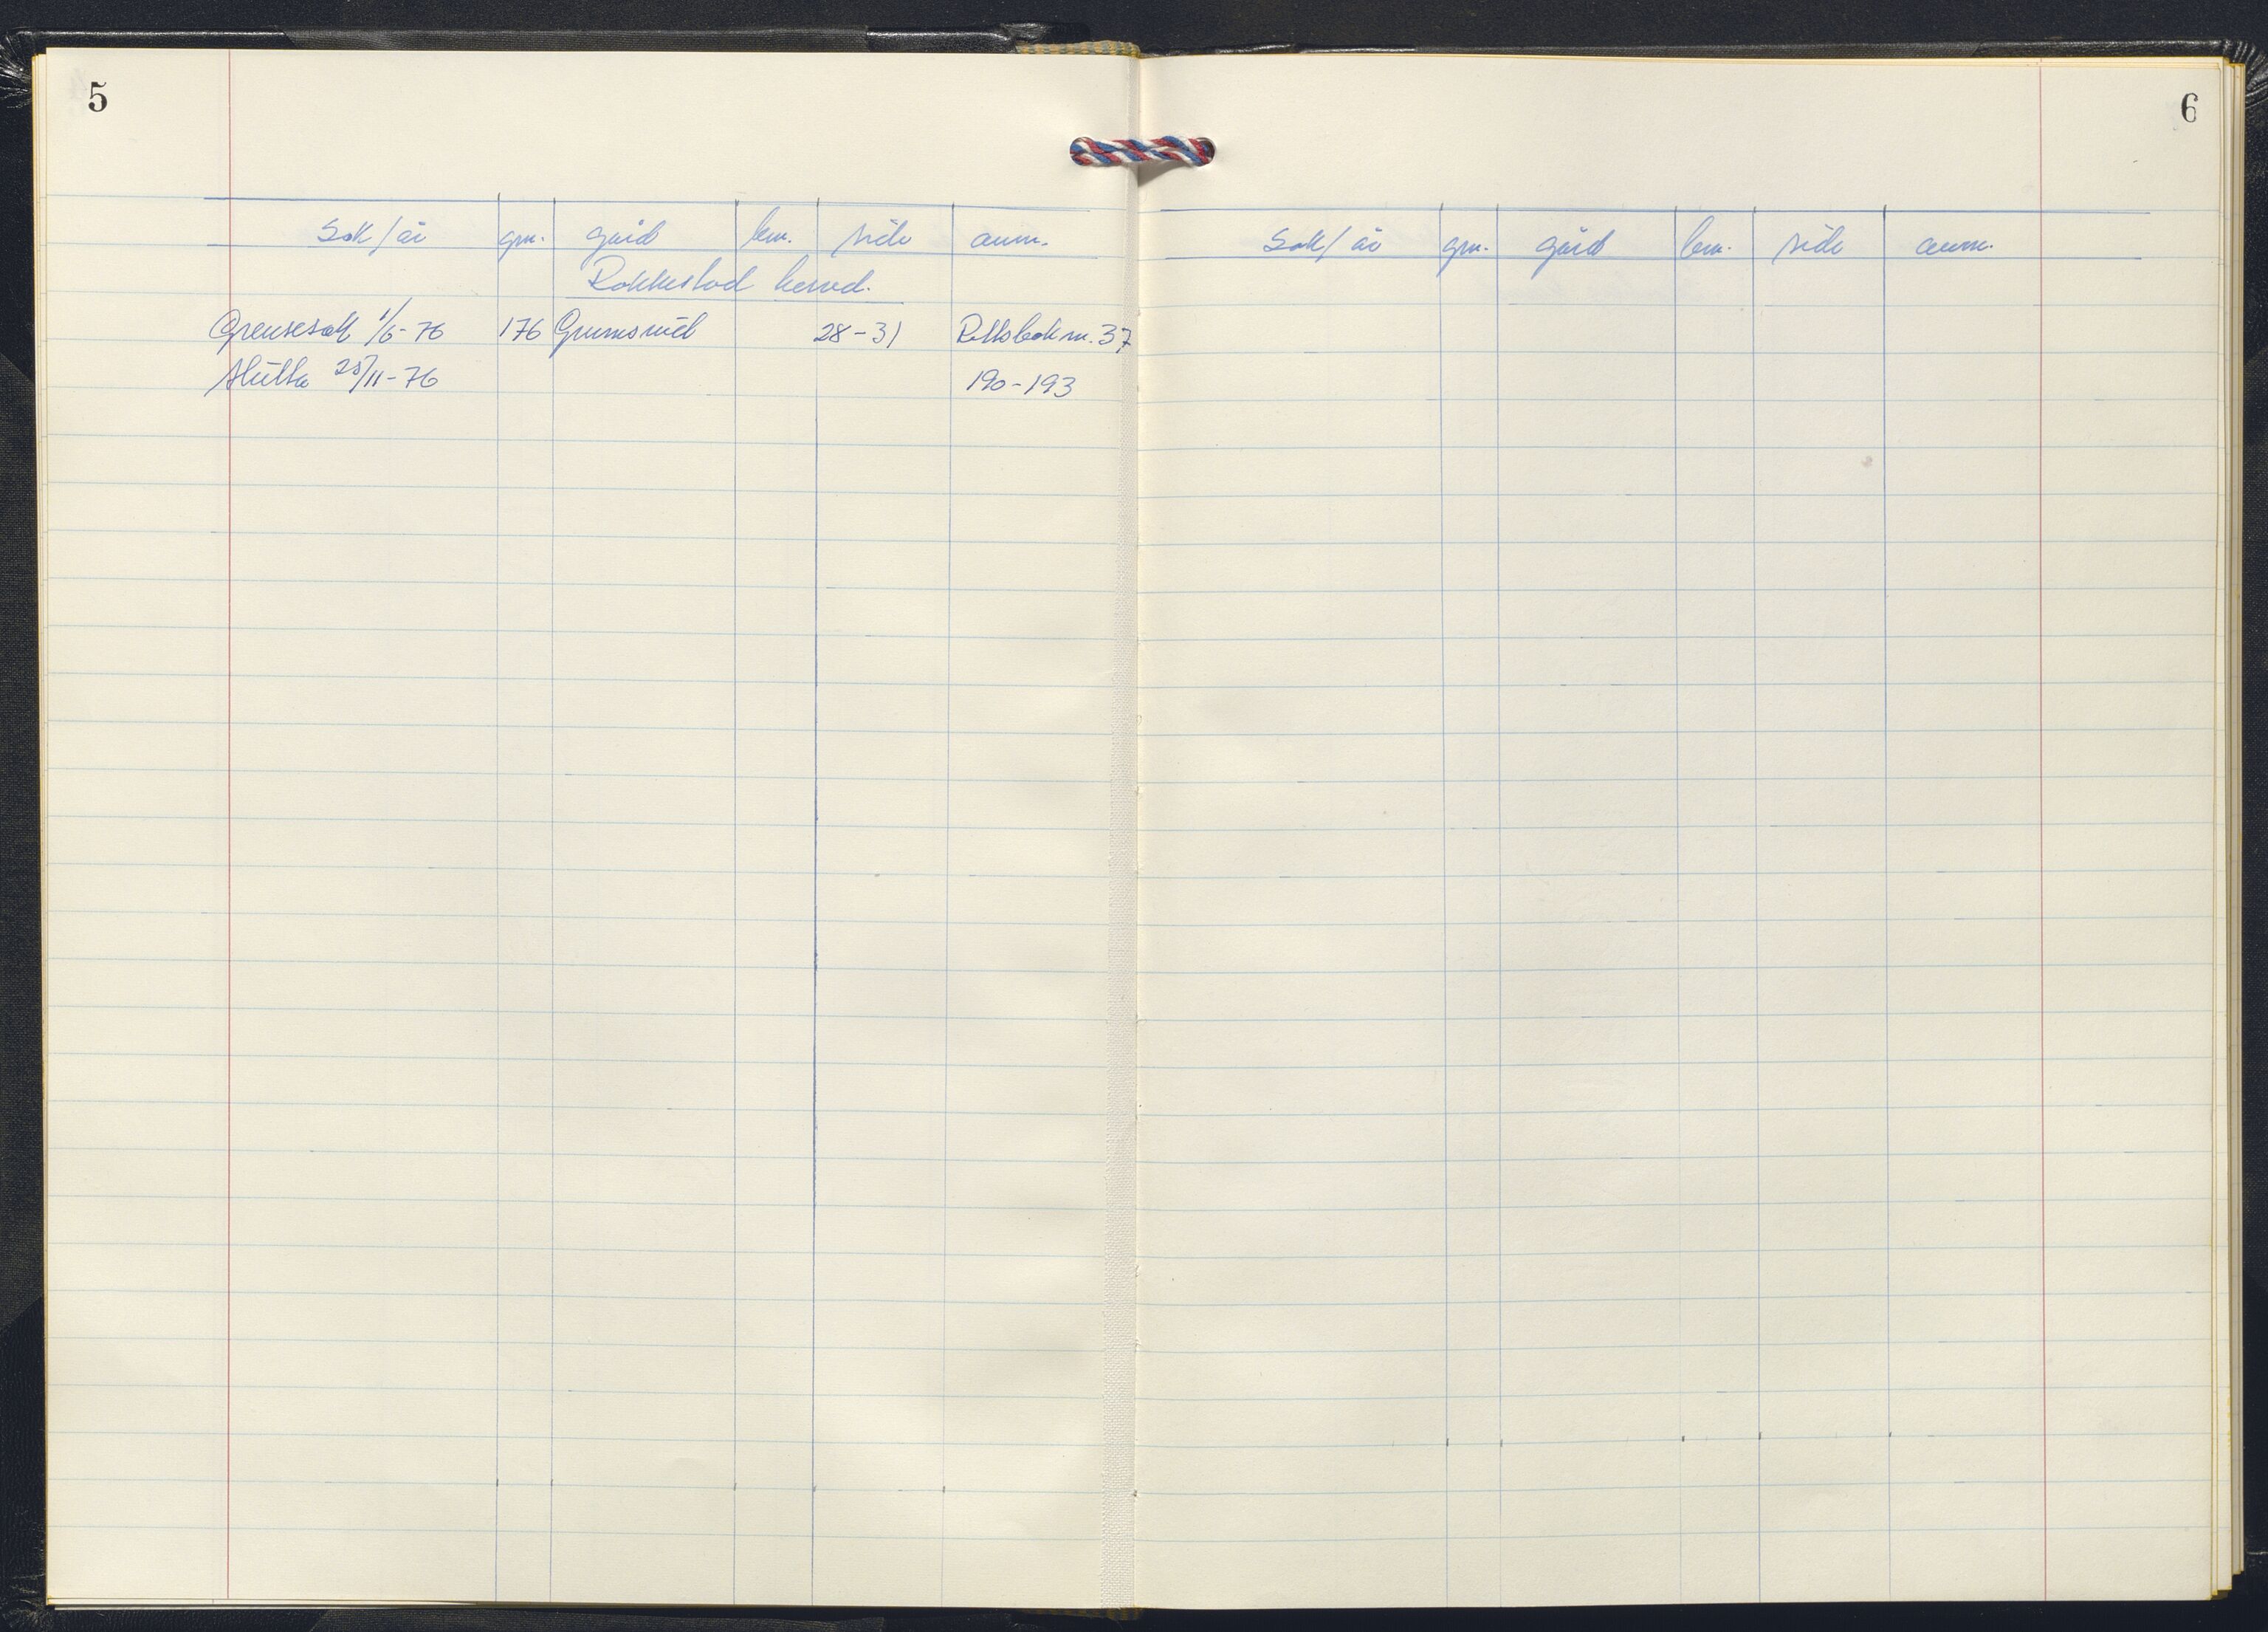 5
Sak/år gnr. gård bnr. side anm.
Rakkestad herred.
Grensesak 1/6-76 176 Grimsrud 28-31 Rettsbok nr. 37
Slutta 25/11-76 190-193
6
Sak/år gnr. gård bnr. side anm.